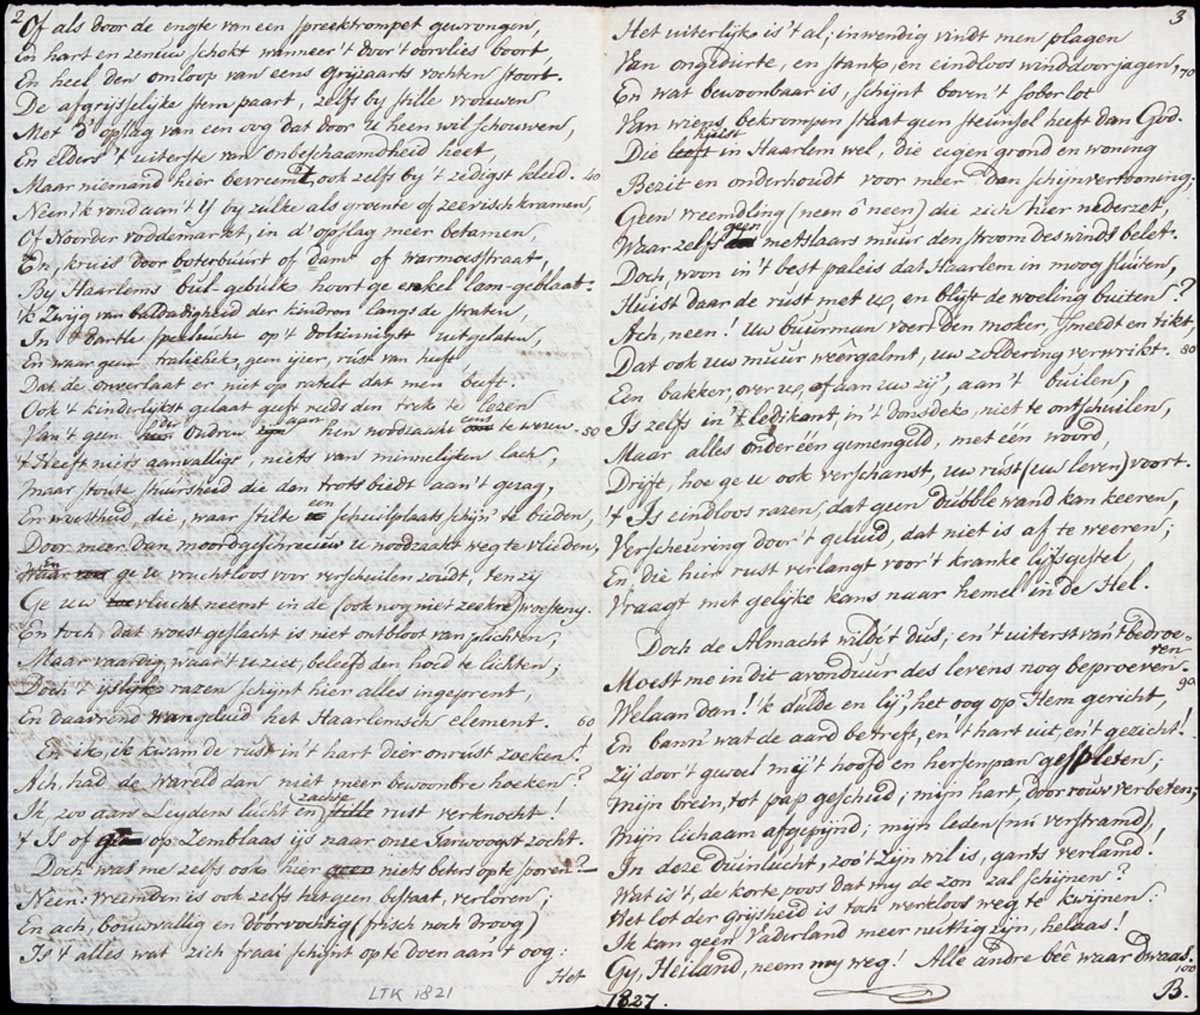 2
Of als door de engte van een spreektrompet gewrongen,
En hart en zenuw schokt wanneer 't door 't oorvlies boort,
En heel den omloop van eens grijzaarts vochten stoort.
De afgrijsselijke stem paart, zelfs by stille vrouwen
Met d' opslag van een oog dat door u heen wil schouwen,
En elders 't uiterste van onbeschaamdheid heet,
Maar niemand hier bevreemdt, ook zelfs by 't zedigst kleed. 40
Neen! 'k vond aan 't Y by zulke als groente of zeevisch kramen,
Of Noorder voddemarkt, in d' opslag meer betamen,
En, kruis door boterbuurt of dam of warmoesstraat,
By Haarlems bul-gebulk hoort ge enkel lam-geblaat.
'k Zwijg van baldadigheid der kindren langs de straten,
In dartle speelzucht op 't dolzinnigst uitgelaten,
En waar geen traliehek, geen ijzer, rust van heeft
Dat de onverlaat er niet op ratelt dat men beeft.
Ook 't kinderlijkst gelaat geeft reeds den trek te lezen
Van 't geen die Oudren aan hen noodzaakt eens te wezen. 50
't Heeft niets aanvalligs, niets van minnelijken lach,
Maar stoute stuursheid die den trots biedt aan 't gezag,
En woestheid, die, waar stilte een schuilplaats schijn' te bieden,
Door meer dan moordgeschreeuw u noodzaakt weg te vlieden,
En ge u vruchtloos voor verschuilen zoudt, ten zij
Ge uw toevlucht neemt in de (ook nog niet zeekre) woesteny.
En toch, dat woest geslacht is niet ontbloot van plichten,
Maar vaardig, waar 't u ziet, beleefd den hoed te lichten;
Doch 't ijslijk razen schijnt hier alles ingeprent,
En daavrend wangeluid het Haarlemsch element. 60
En ik, ik kwam de rust in 't hart dier onrust zoeken!
Ach, had de wareld dan niet meer bewoonbre hoeken?
Ik, zoo aan Leydens lucht en zachte stille rust verknocht!
't Is of op Zemblaas ijs naar onze Tarwoogst zocht.
Doch wat me zelfs ook hier geen niets beters op te sporen? —
Neen: vreemden is ook zelfs het geen bestaat, verloren;
En ach, bouwvallig en dóórvochtig (frisch noch droog)
Is 't alles wat zich fraai schijnt op te doen aan 't oog:
Het
LTK 1821
3
Het uiterlijk is 't al; inwendig vindt men plagen
Van ongedierte, en stank, en eindloos winddoorjagen, 70
En wat bewoonbaar is, schijnt boven 't sober lot
Van wiens bekrompen staat geen steunsel heeft dan God.
Die leeft huist in Haarlem wel, die eigen grond en woning
Bezit en onderhoudt voor meer dan schijnvertooning;
Geen vreemdling (neen ô neen) die zich hier nederzet,
Waar zelfs geen metslaars muur den stroom des winds belet.
Doch, woon in 't best paleis dat Haarlem in moog sluiten,
Huist daar de rust met u, en blijft de woeling buiten?
Ach, neen! Uw buurman voert den moker, smeedt en tikt
Dat ook uw muur weêrgalmt, uw zoldering verwrikt. 80
Een bakker, over u, of aan uw zij', aan 't builen,
Is zelfs in 't ledikant, in 't donsdek, niet te ontschuilen,
Maar alles onder één gemengeld, met één woord,
Drijft, hoe ge u ook verschanst, uw rust (uw leven) voort.
't Is eindloos razen, dat geen dubble wand kan keeren,
Verscheuring door 't geluid, dat niet is af te weeren;
En, die hier rust verlangt voor 't kranke lijfsgestel,
Vraagt met gelijke kans naar hemel in de Hel.
Doch de Almacht wilde 't dus; en 't uiterst van 't bedroeven
Moest me in dit avonduur des levens nog beproeven. 90
Welaan dan! 'k dulde en lij', het oog op Hem gericht,
En bann' wat de aard betreft, en 't hart uit, en 't gezicht!
Zij door 't gewoel mij 't hoofd en hersenpan gespleten;
Mijn brein, tot pap geschud; mijn hart, door rouw verbeten;
Mijn lichaam afgepijnd; mijn leden (nú verstramd),
In deze duinlucht, zoo 't Zijn wil is, gants verlamd!
Wat is 't, de korte poos dat my de zon zal schijnen?
Het lot der grijsheid is toch werkloos weg te kwijnen:
Ik kan geen Vaderland meer nuttig zijn, helaas!
Gy, Heiland, neem my weg! Alle andre beê waar dwaas. 100
1827.
B.